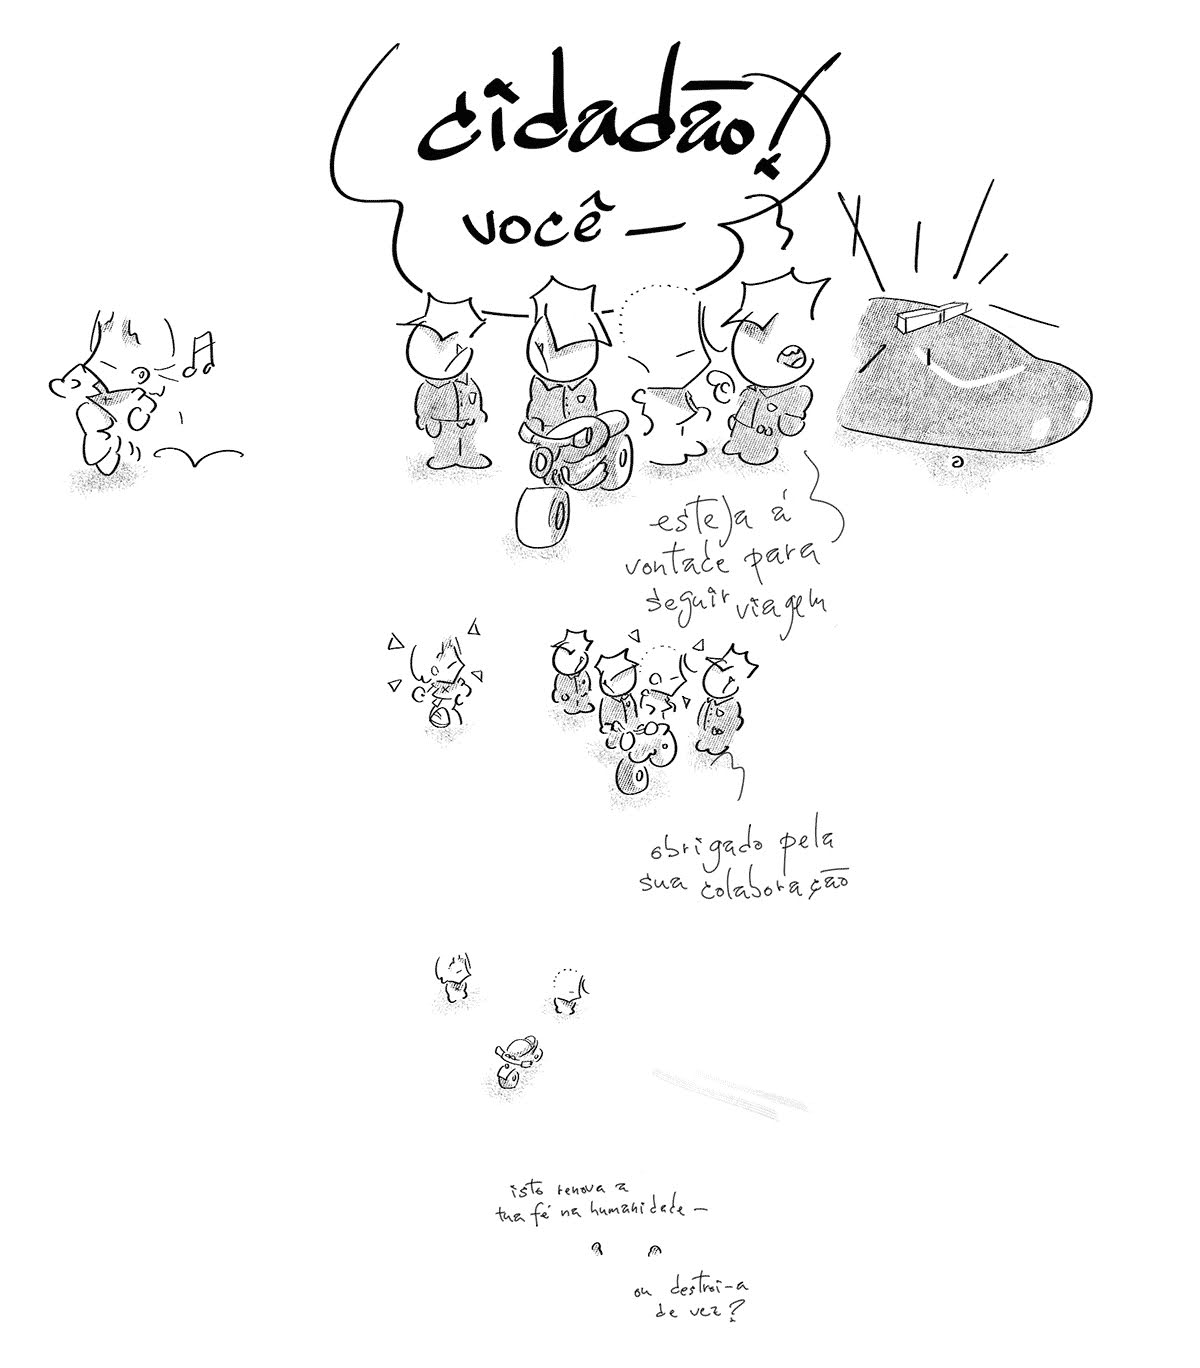 cidadão!
você —
esteja á
vontade para
seguir viagem
obrigado pela
sua colaboração
isto renova a
tua fé na humanidade —
ou destroi-a
de vez?